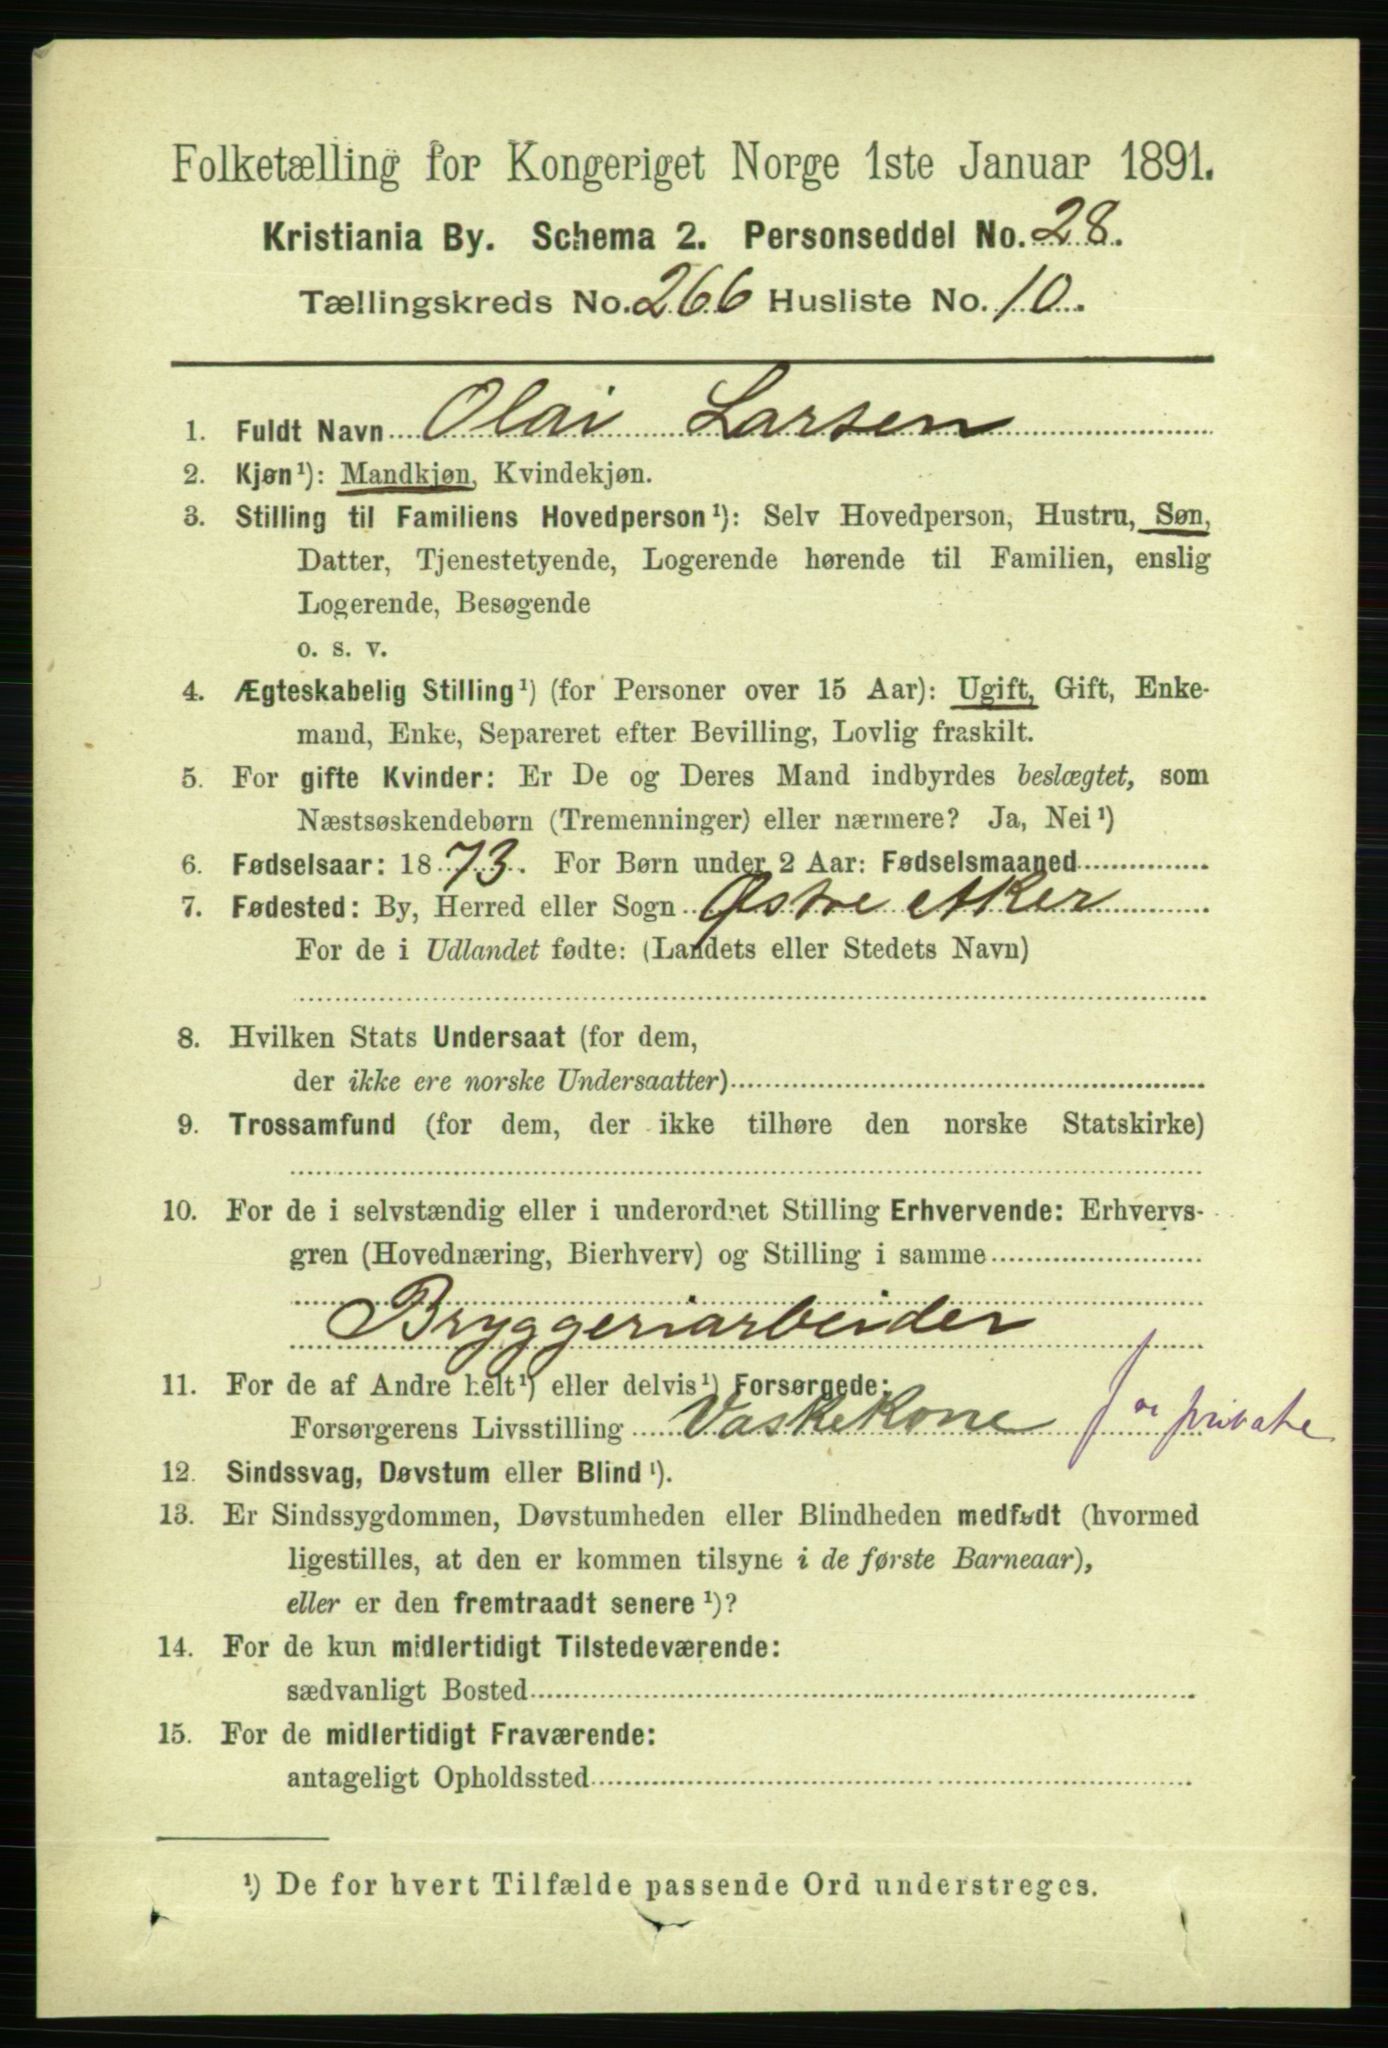 Folketælling for Kongeriget Norge 1ste Januar 1891.
Kristiania By. Schema 2. Personseddel No. 28.
Tællingskreds No. 266 Husliste No. 10.
1. Fuldt Navn Olai Larsen
2. Kjøn¹): Mandkjøn, Kvindekjøn.
3. Stilling til Familiens Hovedperson¹): Selv Hovedperson, Hustru, Søn,
Datter, Tjenestetyende, Logerende hørende til Familien, enslig
Logerende, Besøgende
o. s. v.
4. Ægteskabelig Stilling¹) (for Personer over 15 Aar): Ugift, Gift, Enke-
mand, Enke, Separeret efter Bevilling, Lovlig fraskilt.
5. For gifte Kvinder: Er De og Deres Mand indbyrdes beslægtet, som
Næstsøskendebørn (Tremenninger) eller nærmere? Ja, Nei¹)
6. Fødselsaar: 1873. For Børn under 2 Aar: Fødselsmaaned
7. Fødested: By, Herred eller Sogn Østre Aker
For de i Udlandet fødte: (Landets eller Stedets Navn)
8. Hvilken Stats Undersaat (for dem,
der ikke ere norske Undersaatter)
9. Trossamfund (for dem, der ikke tilhøre den norske Statskirke)
10. For de i selvstændig eller i underordnet Stilling Erhvervende: Erhvervs-
gren (Hovednæring, Bierhverv) og Stilling i samme
Bryggeriarbeider
11. For de af Andre helt¹) eller delvis¹) Forsørgede:
Forsørgerens Livsstilling Vaskekone for private
12. Sindssvag, Døvstum eller Blind¹).
13. Er Sindssygdommen, Døvstumheden eller Blindheden medfødt (hvormed
ligestilles, at den er kommen tilsyne i de første Barneaar),
eller er den fremtraadt senere¹)?
14. For de kun midlertidigt Tilstedeværende:
sædvanligt Bosted
15. For de midlertidigt Fraværende:
antageligt Opholdssted
¹) De for hvert Tilfælde passende Ord understreges.